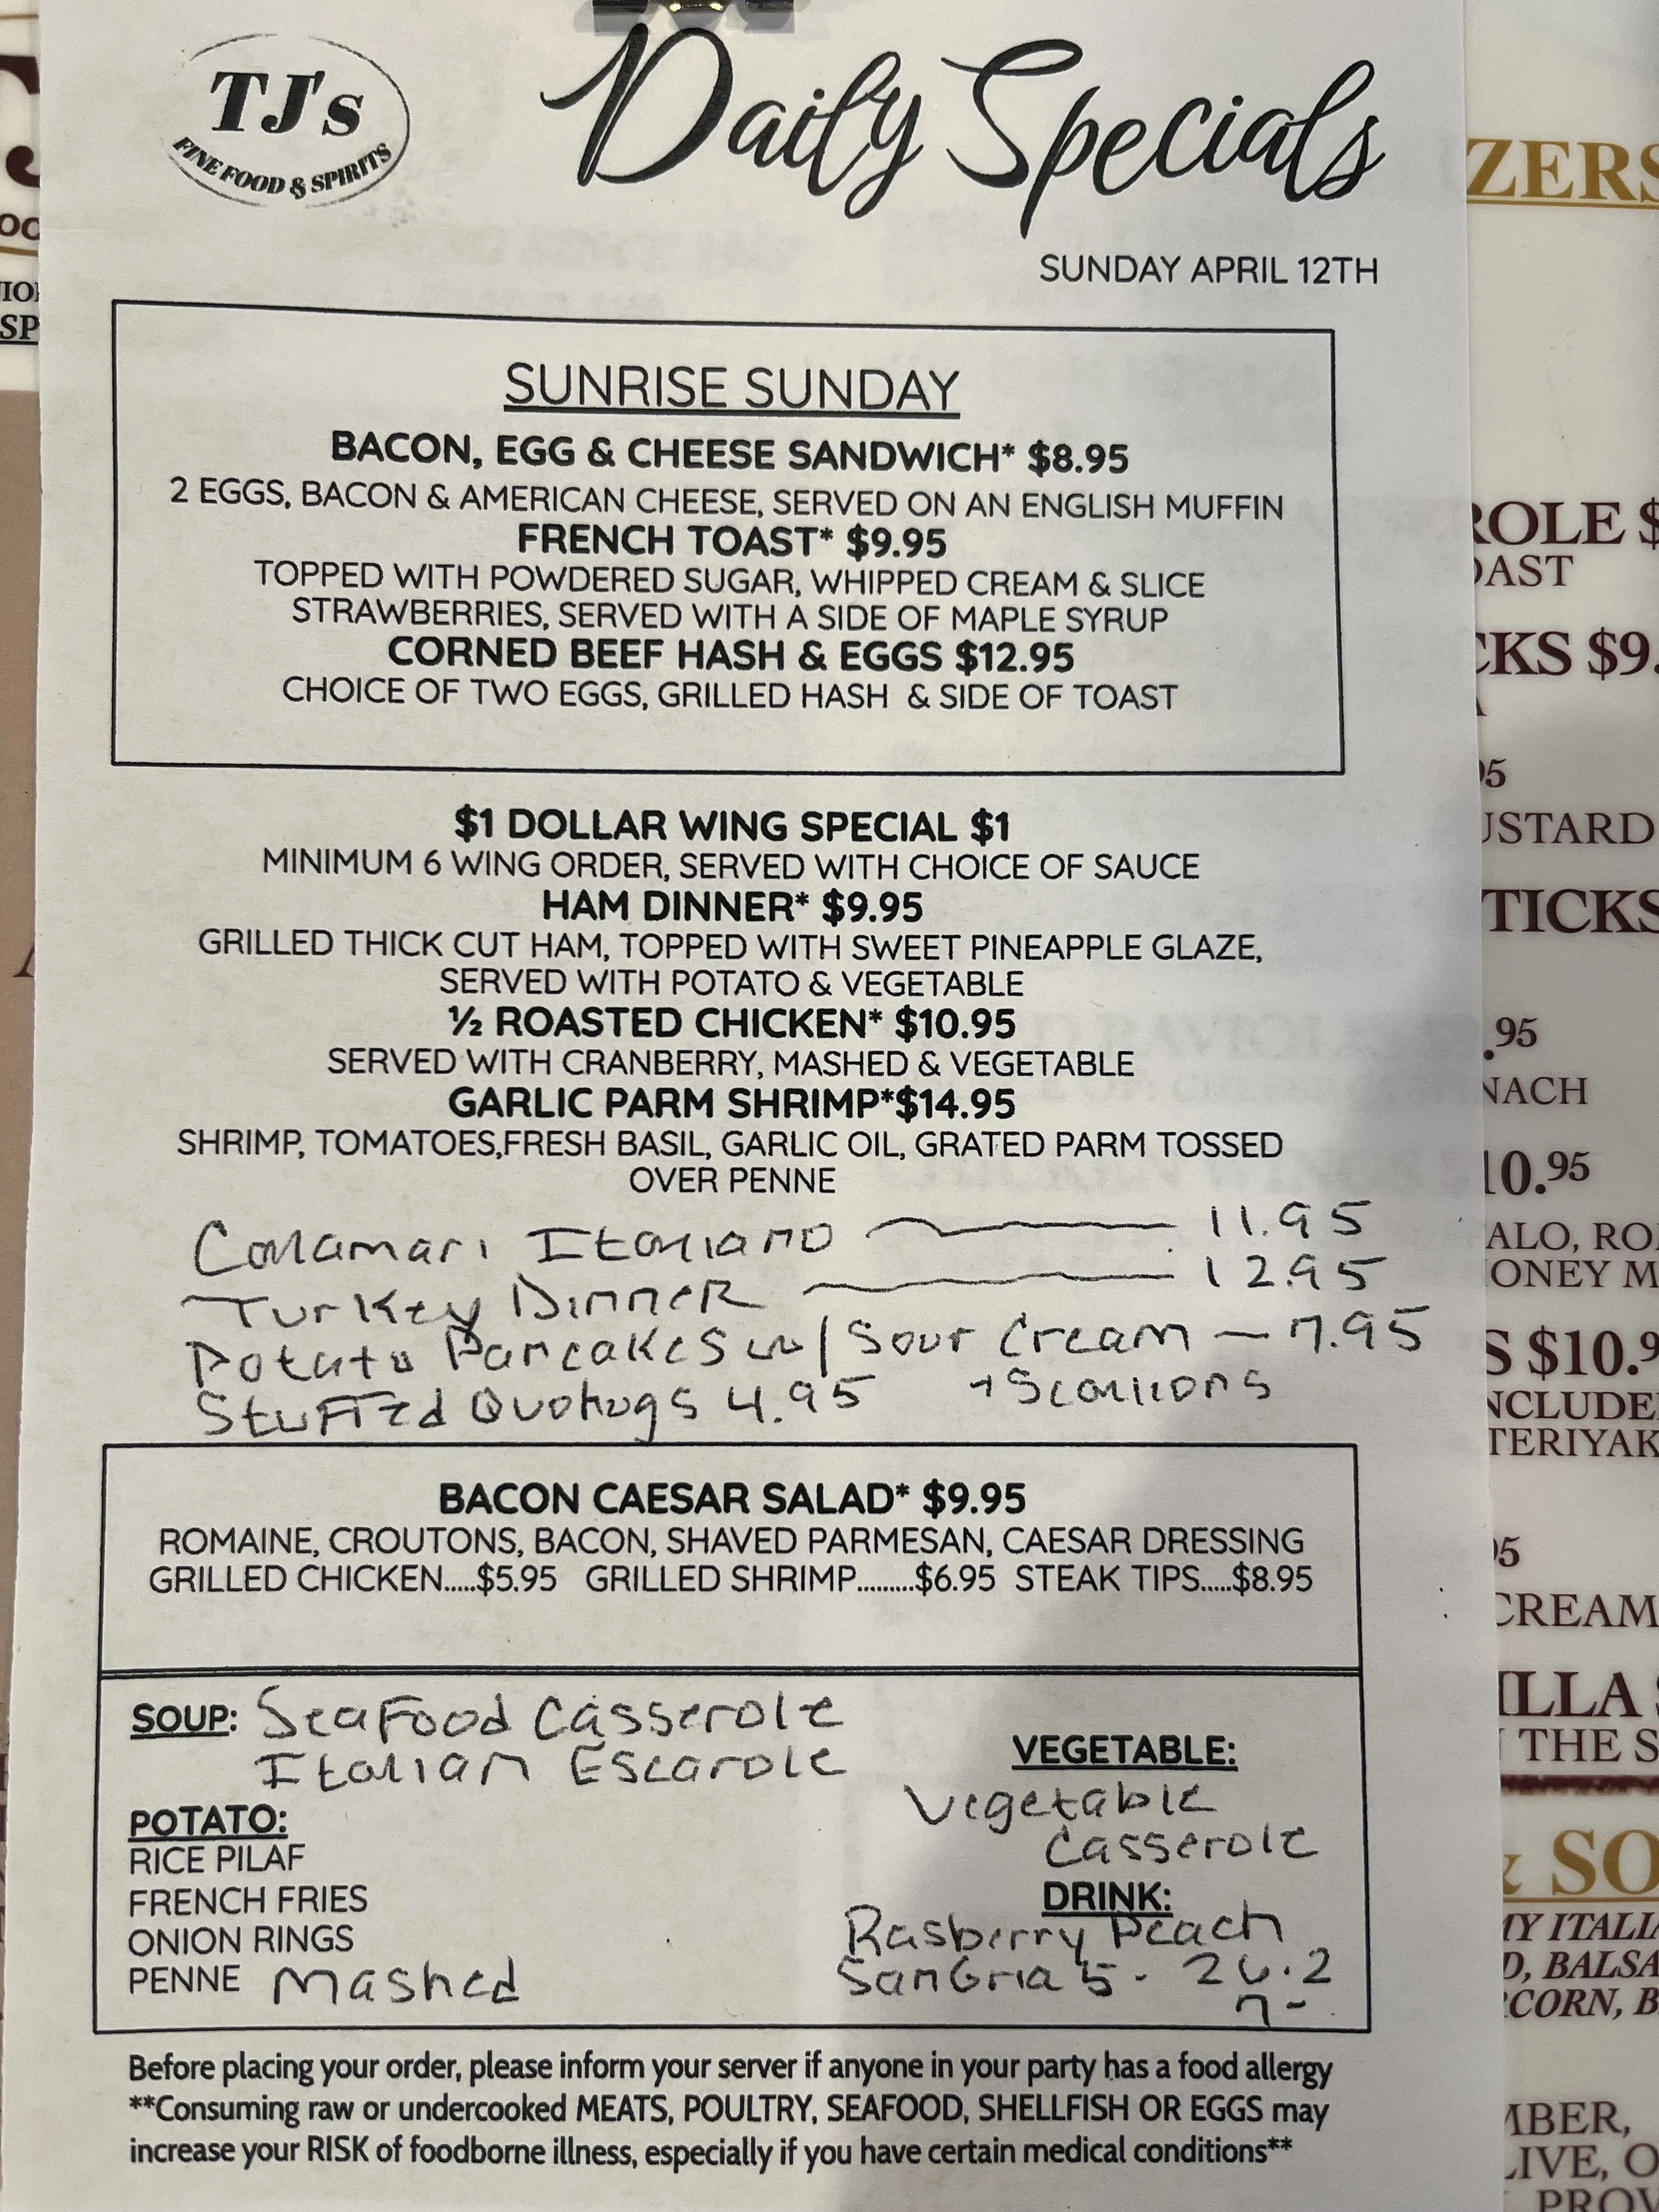 TJ's
FINE FOOD & SPIRITS
Daily Specials
SUNDAY APRIL 12TH
SUNRISE SUNDAY
BACON, EGG & CHEESE SANDWICH* $8.95
2 EGGS, BACON & AMERICAN CHEESE, SERVED ON AN ENGLISH MUFFIN
FRENCH TOAST* $9.95
TOPPED WITH POWDERED SUGAR, WHIPPED CREAM & SLICE
STRAWBERRIES, SERVED WITH A SIDE OF MAPLE SYRUP
CORNED BEEF HASH & EGGS $12.95
CHOICE OF TWO EGGS, GRILLED HASH & SIDE OF TOAST
$1 DOLLAR WING SPECIAL $1
MINIMUM 6 WING ORDER, SERVED WITH CHOICE OF SAUCE
HAM DINNER* $9.95
GRILLED THICK CUT HAM, TOPPED WITH SWEET PINEAPPLE GLAZE,
SERVED WITH POTATO & VEGETABLE
½ ROASTED CHICKEN* $10.95
SERVED WITH CRANBERRY, MASHED & VEGETABLE
GARLIC PARM SHRIMP*$14.95
SHRIMP, TOMATOES,FRESH BASIL, GARLIC OIL, GRATED PARM TOSSED
OVER PENNE
Calamari Italiano — 11.95
Turkey Dinner — 12.95
Potato Pancakes w/ Sour Cream — 7.95
Stuffed Quohugs 4.95 + Scallions
BACON CAESAR SALAD* $9.95
ROMAINE, CROUTONS, BACON, SHAVED PARMESAN, CAESAR DRESSING
GRILLED CHICKEN.....$5.95 GRILLED SHRIMP.........$6.95 STEAK TIPS.....$8.95
SOUP: Seafood Casserole
Italian Escarole
POTATO:
RICE PILAF
FRENCH FRIES
ONION RINGS
PENNE Mashed
VEGETABLE:
Vegetable
Casserole
DRINK:
Rasberry Peach
Sangria 5- 26.2
7-
Before placing your order, please inform your server if anyone in your party has a food allergy
**Consuming raw or undercooked MEATS, POULTRY, SEAFOOD, SHELLFISH OR EGGS may
increase your RISK of foodborne illness, especially if you have certain medical conditions**
ZERS
ROLE $
OAST
CKS $9.
95
USTARD
TICKS
.95
NACH
10.95
ALO, RO
HONEY M
S $10.9
INCLUDE
TERIYAK
95
CREAM
ILLA
THE S
& SO
MY ITALI
D, BALSA
CORN, B
MBER,
LIVE, O
PROV